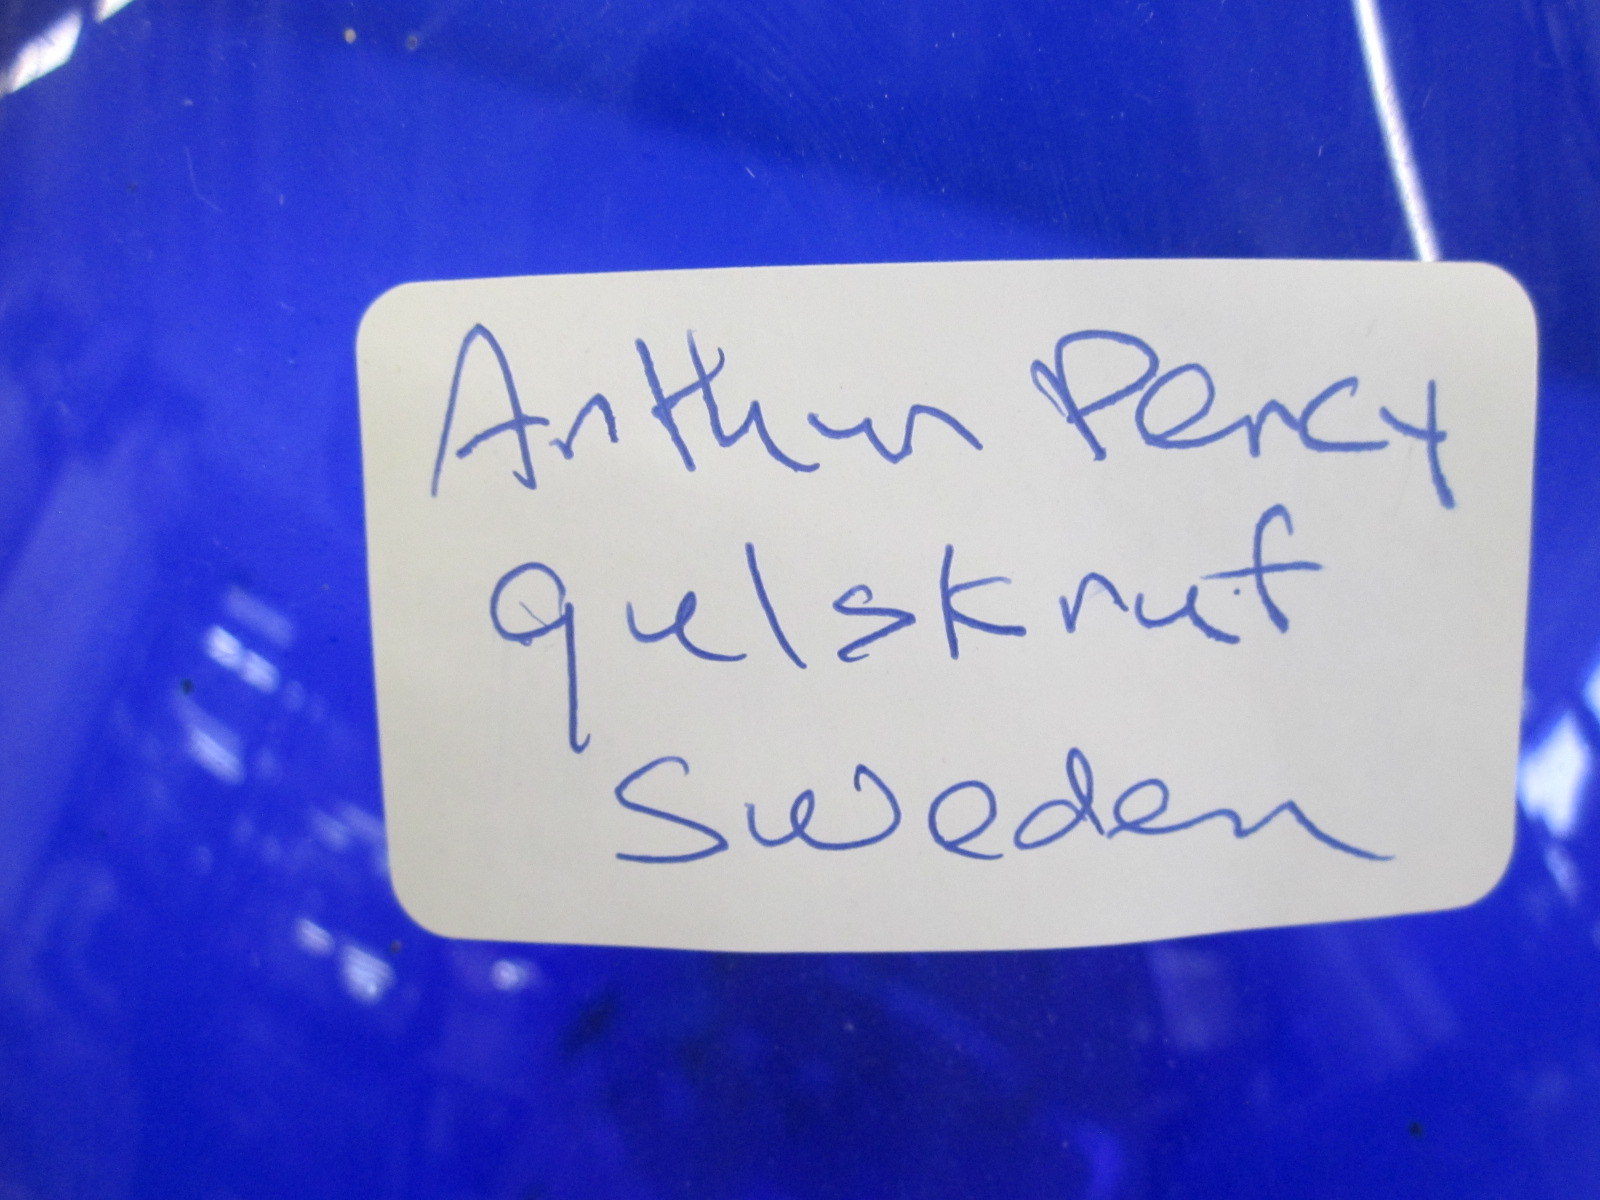 Arthur Percy
gulskruf
Sweden